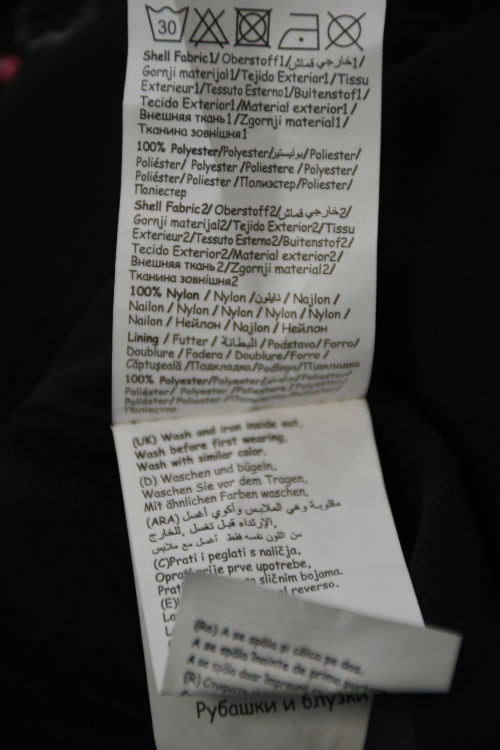 30
Shell Fabric1/ Oberstoff1/خارجي قماش1/
Gornji materijal1/Tejido Exterior1/Tissu
Exterieur1/Tessuto Esterno1/Buitenstof1/
Tecido Exterior1/Material exterior1/
Внешняя ткань1/Zgornji material1/
Тканина зовнішня1
100% Polyester/Polyester/بوليستير/Poliester/
Poliéster/ Polyester /Poliestere /Polyester/
Poliéster/ Poliester /Полиэстер/Poliester/
Поліестер
Shell Fabric2/ Oberstoff2/خارجي قماش2/
Gornji materijal2/Tejido Exterior2/Tissu
Exterieur2/Tessuto Esterno2/Buitenstof2/
Tecido Exterior2/Material exterior2/
Внешняя ткань2/Zgornji material2/
Тканина зовнішня2
100% Nylon / Nylon /نايلون / Najlon /
Nailon / Nylon / Nylon / Nylon / Nylon /
Nailon / Нейлон / Najlon / Нейлон
Lining / Futter / البطانة / Podstava/ Forro/
Doublure / Fodera / Doublure/ Forro /
Căptuşeală /Подкладка/Podloga/Підкладка
100% Polyester/Polyester/بوليستير/Poliester/
Poliéster/ Polyester /Poliestere /Polyester/
Poliéster/ Poliester /Полиэстер/Poliester/
Поліестер
(UK) Wash and iron inside out.
Wash before first wearing.
Wash with similar color.
(D) Waschen und bügeln.
Waschen Sie vor dem Tragen.
Mit ähnlichen Farben waschen.
(ARA) مقلوبة وهي الملابس وأكوي أغسل
.الإرتداء قبل تغسل .للخارج
من اللون نفسه فقط أغسل مع ملابس
(C)Prati i peglati s naličja.
prije prve upotrebe.
sličnim bojama.
(E) al reverso.
(Ro) A se spăla şi călca pe dos.
A se spăla înainte de prima
A se spăla doar împreună
(R)
Рубашки и блузки